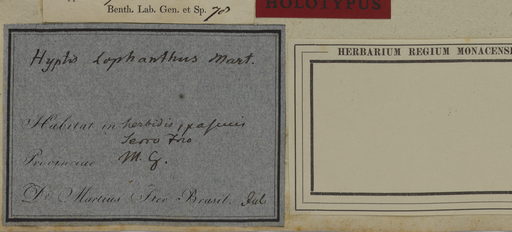 Benth. Lab. Gen. et Sp. 78
HOLOTYPUS
Hyptis lophanthus Mart.
Habitat in herbidis, pascuis
Serro Frio
Provinciae M. G.
Dr Martius Iter Brasil. Jul
HERBARIUM REGIUM MONACENSE